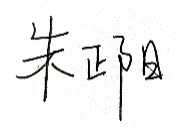 朱正阳